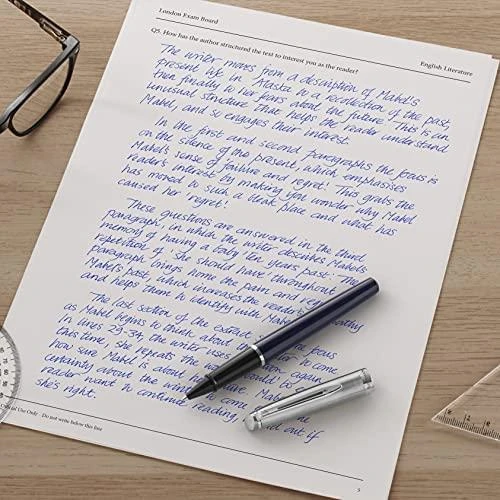 London Exam Board
English Literature
Q5. How has the author structured the text to interest you as the reader?
The writer moves from a description of Mabel's
present life in Alaska to a recollection of the past,
then finally to her fears about the future. This is an
unusual structure that helps the reader understand
Mabel, and so engages their interest.
In the first and second paragraphs the focus is
on the silence of the present, which emphasises
Mabel's sense of failure and regret! This grabs the
reader's interest by making you wonder why Mabel
has moved to such a bleak place and what has
caused her regret!
These questions are answered in the third
paragraph, in which the writer describes Mabel's
memory of having a baby 'ten years past'. The
repetition of 'she should have' throughout
paragraph brings home the pain and regret
Mabel's past, which increases the reader's
and helps them to identify with Mabel
The last section of the extract focus
as Mabel begins to think about the to come
In lines 29-34 the writer uses again
this time, she repeats the wo could be
how sure Mabel is about
certainty about the winter to come
reader want to continue reading, out if
she's right.
Official Use Only - Do not write below this line
5